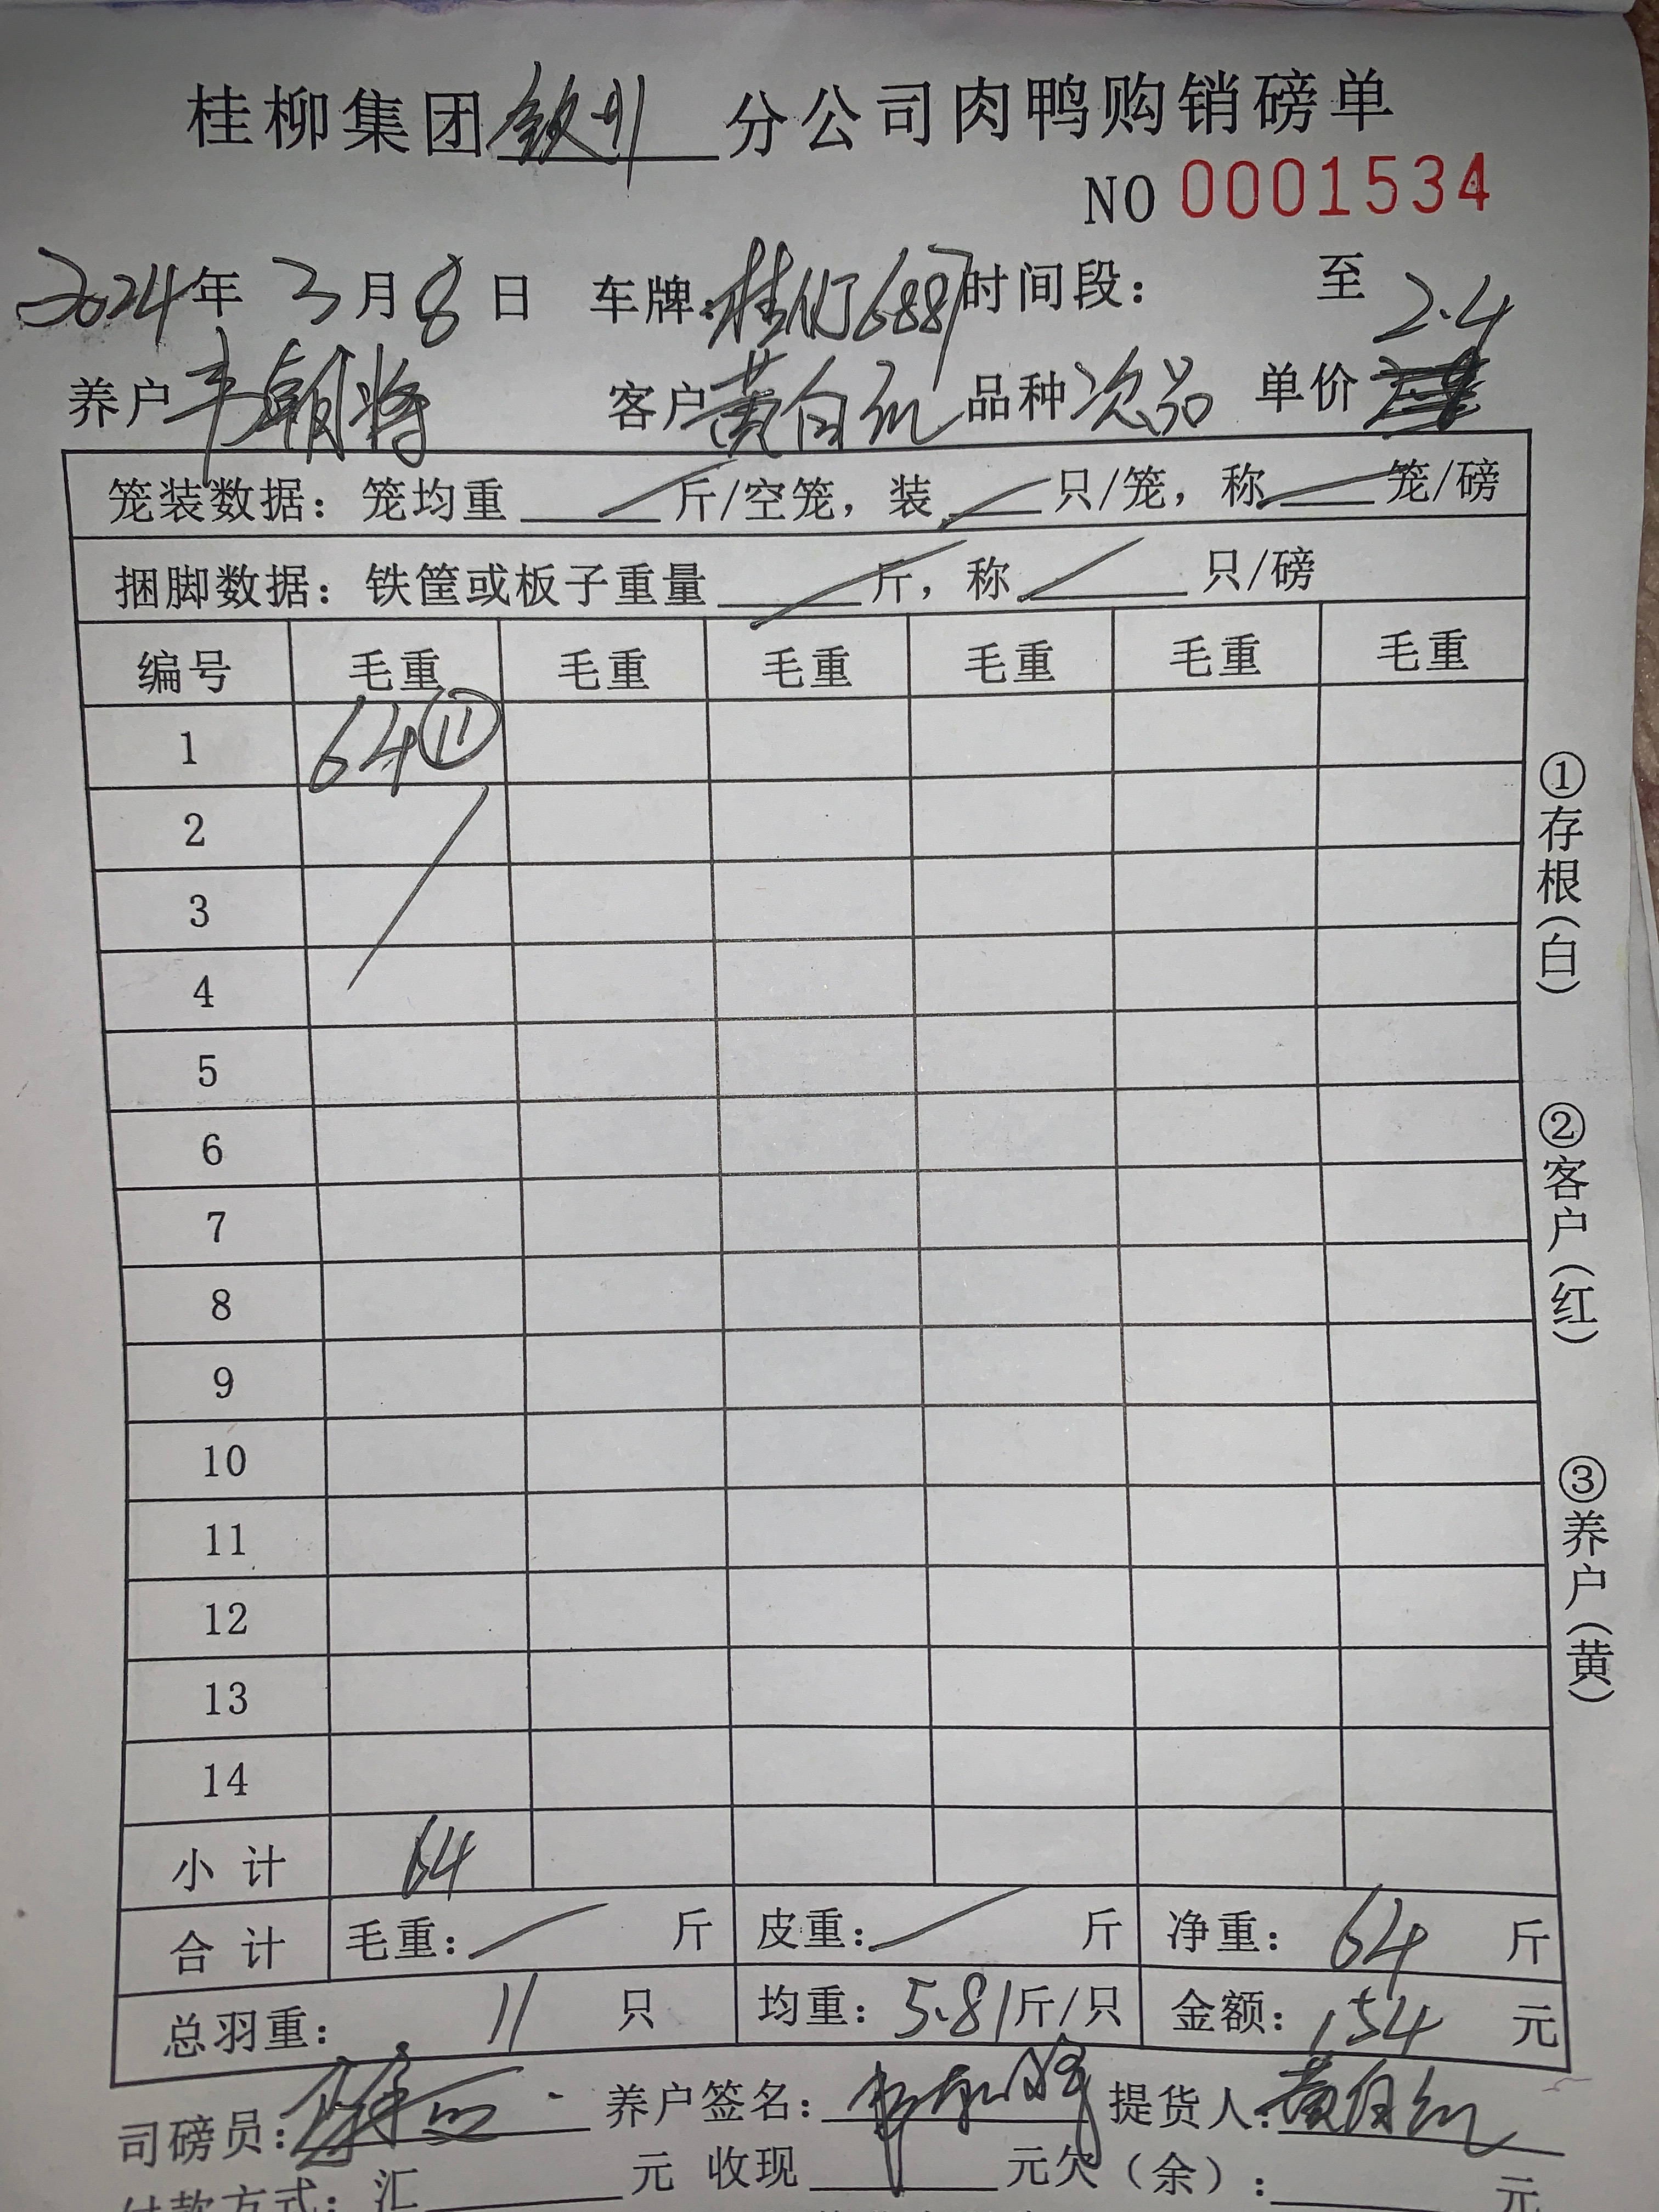 桂柳集团钦州分公司肉鸭购销磅单
NO 0001534
2024年3月8日 车牌:桂 6887 时间段: 至
2.4
养户韦朝将 客户黄白红 品种次品 单价
笼装数据:笼均重 斤/空笼,装 只/笼,称 笼/磅
捆脚数据:铁筐或板子重量 斤,称 只/磅
编号 毛重 毛重 毛重 毛重 毛重 毛重
1 64 ⑪
2
3
4
5
6
7
8
9
10
11
12
13
14
小计 64
合计 毛重: 斤 皮重: 斤 净重: 64 斤
总羽重: 11 只 均重: 5.81斤/只 金额: 154 元
司磅员: 养户签名: 提货人:黄白红
付款方式:汇 元 收现 元欠(余): 元
①存根(白)
②客户(红)
③养户(黄)